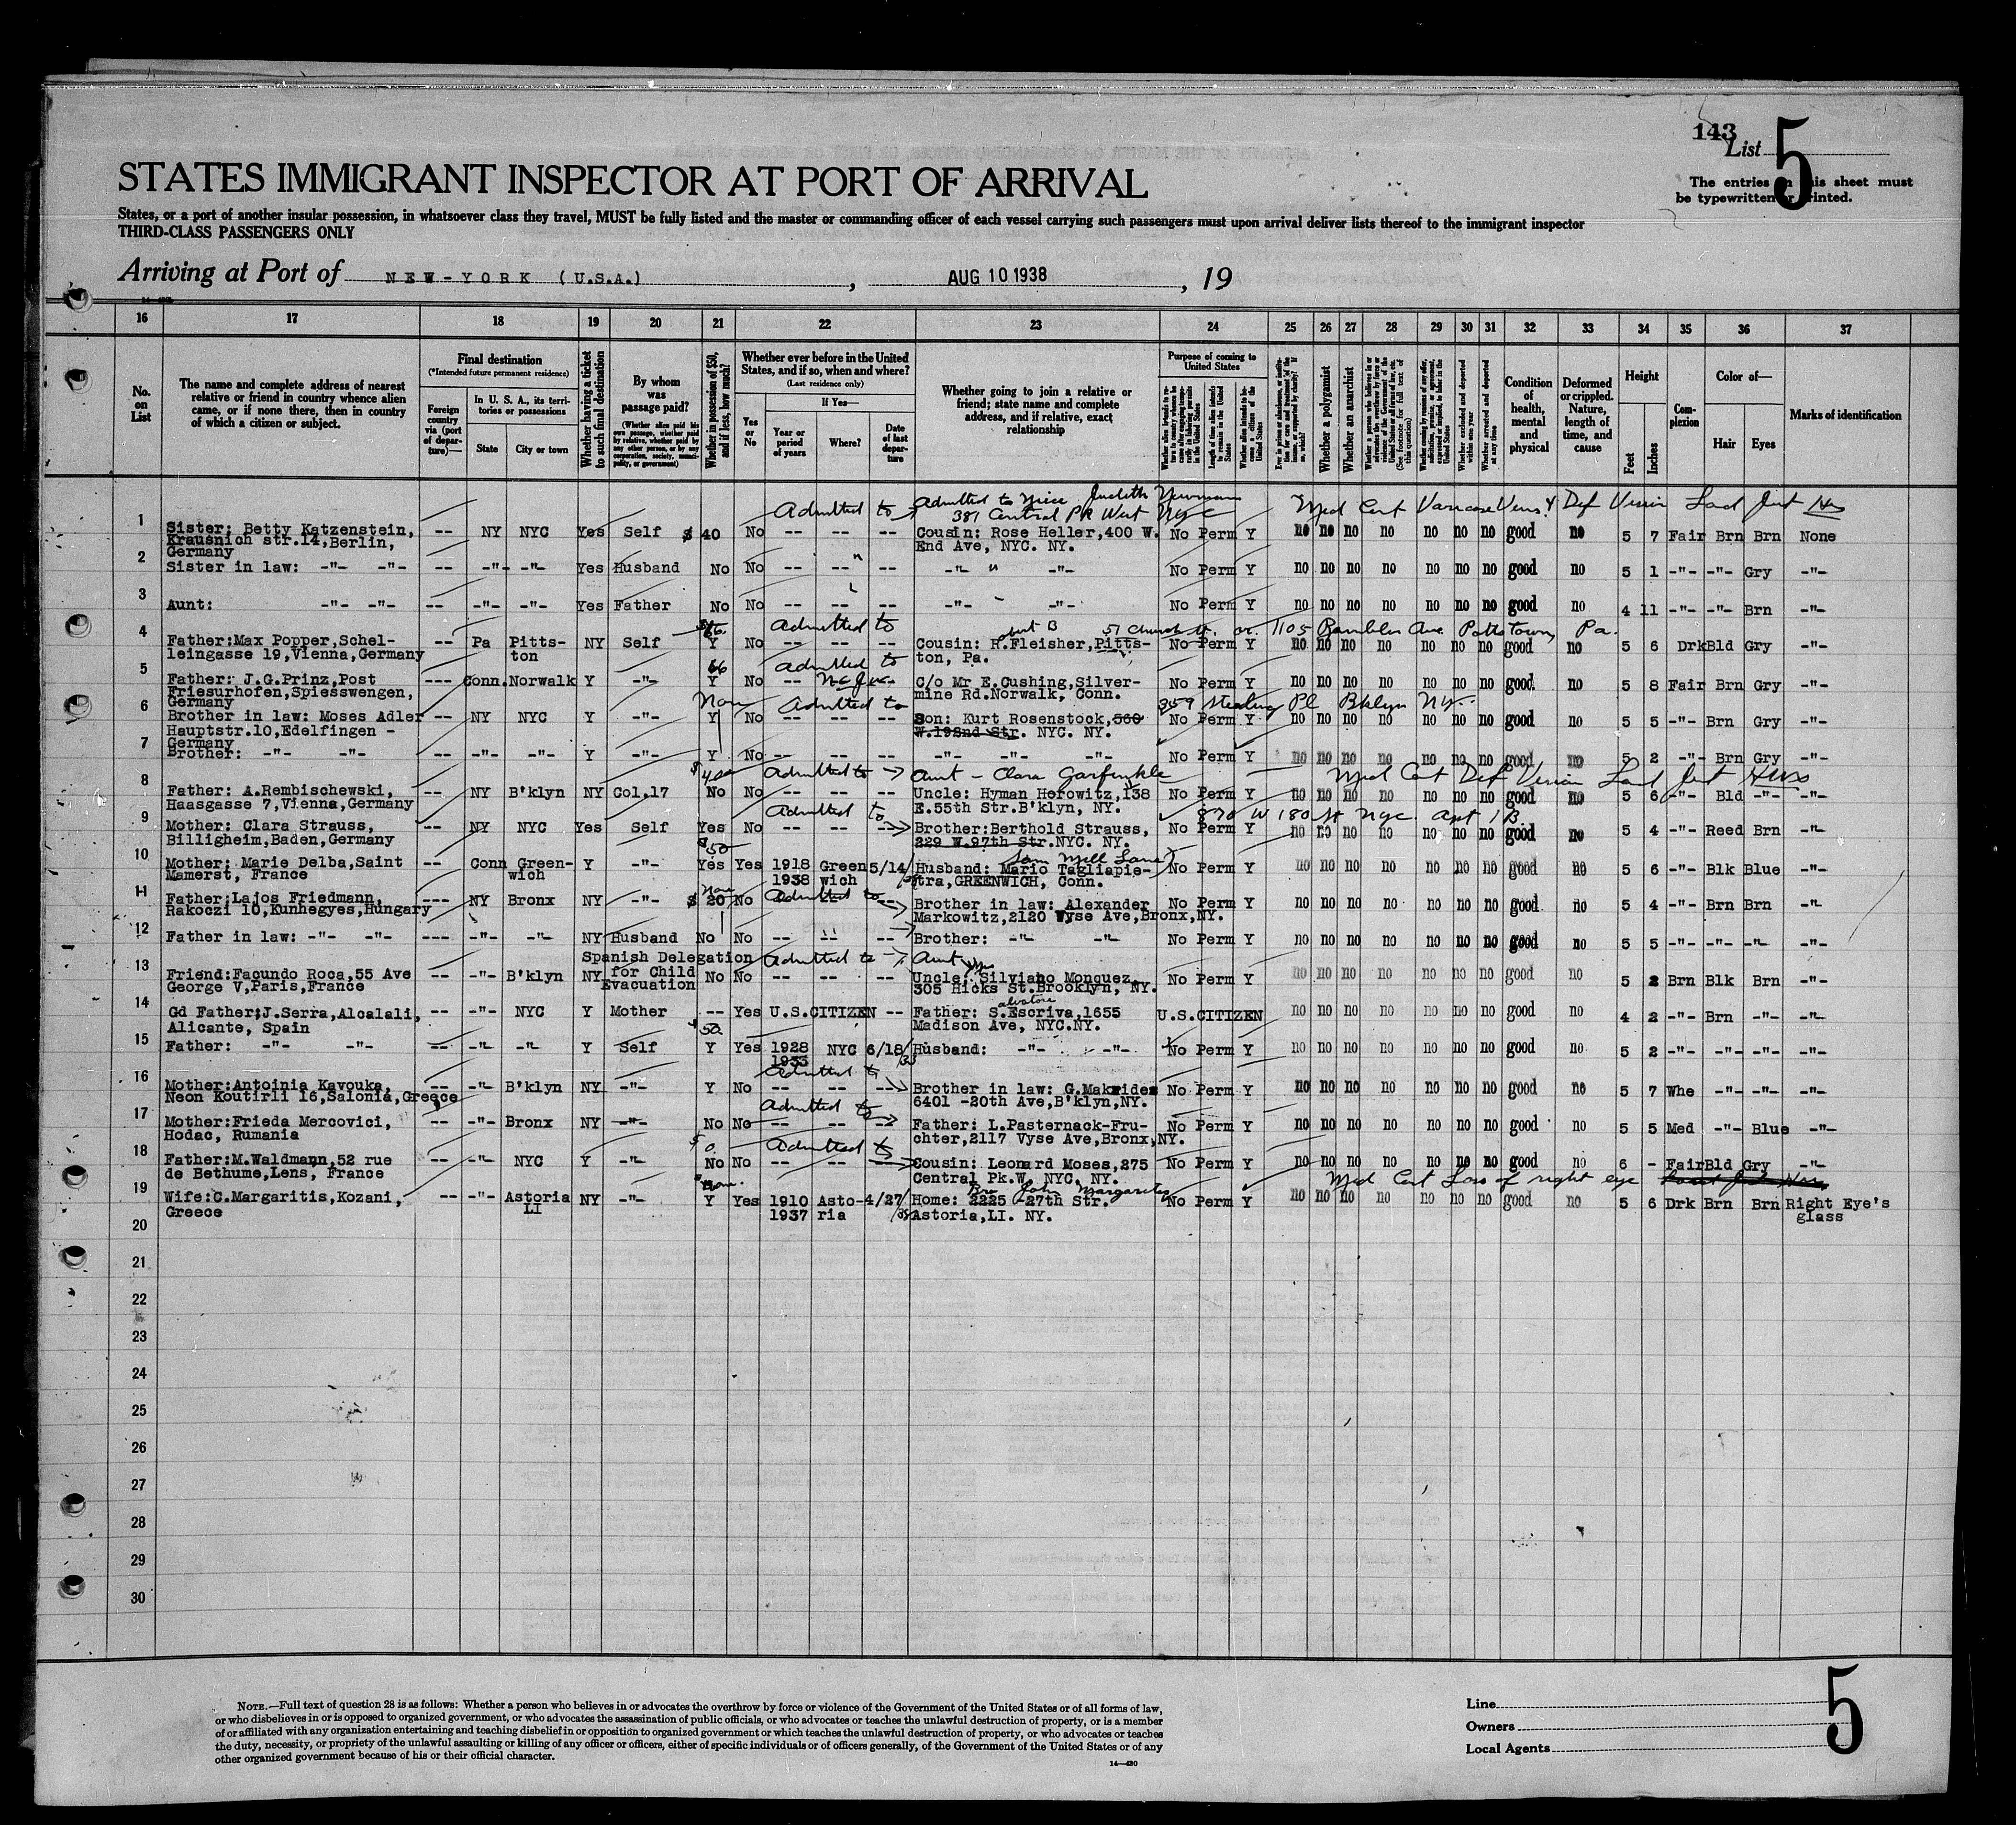 143
List 5
The entries on this sheet must
be typewritten or printed.
STATES IMMIGRANT INSPECTOR AT PORT OF ARRIVAL
States, or a port of another insular possession, in whatsoever class they travel, MUST be fully listed and the master or commanding officer of each vessel carrying such passengers must upon arrival deliver lists thereof to the immigrant inspector
THIRD-CLASS PASSENGERS ONLY
Arriving at Port of NEW-YORK (U.S.A.), AUG 10 1938, 19
16 17 18 19 20 21 22 23 24 25 26 27 28 29 30 31 32 33 34 35 36 37
No. on List
The name and complete address of nearest relative or friend in country whence alien came, or if none there, then in country of which a citizen or subject.
Final destination
(*Intended future permanent residence)
Foreign country via (port of departure)—
In U. S. A., its territories or possessions
State
City or town
Whether having a ticket to such final destination
By whom was passage paid?
(Whether alien paid his own passage, whether paid by relative, whether paid by any other person, or by any corporation, society, municipality, or government)
Whether in possession of $50, and if less, how much?
Whether ever before in the United States, and if so, when and where?
(Last residence only)
Yes or No
If Yes—
Year or period of years
Where?
Date of last departure
Whether going to join a relative or friend; state name and complete address, and if relative, exact relationship
Purpose of coming to United States
Whether a polygamist
Whether an anarchist
Condition of health, mental and physical
Deformed or crippled. Nature, length of time, and cause
Height
Feet
Inches
Complexion
Color of—
Hair
Eyes
Marks of identification
Admitted to Niece Judith Newman
381 Central Pk West NYC
Med Cert Varicose Veins & Def Vision
1 Sister: Betty Katzenstein, -- NY NYC Yes Self $ 40 No -- -- -- Cousin: Rose Heller,400 W. No Perm Y no no no no no no no good no 5 7 Fair Brn Brn None
Krausnich str.14,Berlin, End Ave, NYC. NY.
Germany
2 Sister in law: -"- -"- -- -"- -"- Yes Husband No No -- -- -- -"- " -"- No Perm Y no no no no no no no good no 5 1 -"- -"- Gry -"-
3 Aunt: -"- -"- -- -"- -"- Yes Father No No -- -- -- -"- -"- No Perm Y no no no no no no no good no 4 11 -"- -"- Brn -"-
Admitted to 51 Church St. or 1105 Rambler Ave Pottstown, Pa.
4 Father:Max Popper,Schel- -- Pa Pitts- NY Self Y No -- -- -- Cousin: R.Fleisher,Pitts- No Perm Y no no no no no no no good no 5 6 Drk Bld Gry -"-
leingasse 19,Vienna,Germany ton ton, Pa.
Admitted to
5 Father: J.G.Prinz,Post --- Conn. Norwalk Y -"- Y No -- c/o Mr E.Cushing,Silver- No Perm Y no no no no no no no good. no 5 8 Fair Brn Gry -"-
Friesurhofen,Spiesswengen, mine Rd.Norwalk, Conn.
Germany
Admitted to 959 Sterling Pl Bklyn NY.
6 Brother in law: Moses Adler -- NY NYC Y -"- Y No -- -- -- Son: Kurt Rosenstock,560 No Perm Y no no no no no no no good no 5 5 -"- Brn Gry -"-
Hauptstr.10,Edelfingen - W.192nd Str. NYC. NY.
Germany
7 Brother: -"- -"- -- -"- -"- Y -"- Y No -- -- -- -"- -"- -"- No Perm Y no no no no no no no good no 5 2 -"- Brn Gry -"-
Admitted to Aunt - Clara Garfinkle Med Cert Def Vision
8 Father: A.Rembischewski, -- NY B'klyn NY Col.17 No No -- -- -- Uncle: Hyman Herowitz,138 No Perm Y no no no no no no no good no 5 6 -"- Bld -"- -"-
Haasgasse 7,Vienna,Germany E.55th Str.B'klyn, NY.
Admitted to 870 W 180 St Nyc. Apt 1B
9 Mother: Clara Strauss, -- NY NYC Yes Self Yes No -- -- -- Brother:Berthold Strauss, No Perm Y no no no no no no no good no 5 4 -"- Reed Brn -"-
Billigheim,Baden,Germany 229 W.97th Str.NYC. NY.
$50
10 Mother: Marie Delba,Saint -- Conn Green- Y -"- Yes Yes 1918 Green 5/14/ Husband: Mario Tagliapie- No Perm Y no no no no no no no good no 5 6 -"- Blk Blue -"-
Mamerst, France wich 1938 wich tra,GREENWICH, Conn.
Admitted to
11 Father:Lajos Friedmann, --- NY Bronx NY -"- $ 20 No -- Brother in law: Alexander No Perm Y no no no no no no no good no 5 4 -"- Brn Brn -"-
Rakoczi 10,Kunhegyes,Hungary Markowitz,2120 Vyse Ave,Bronx,NY.
12 Father in law: -"- -"- --- -"- -"- NY Husband No No -- -- -- Brother: -"- -"- No Perm Y no no no no no no no good no 5 5 -"- -"- -"- -"-
Spanish Delegation Admitted to Aunt
13 Friend:Facundo Roca,55 Ave -- -"- B'klyn NY for Child No No -- -- -- Uncle: Silviano Monquez, No Perm Y no no no no no no no good no 5 2 Brn Blk Brn -"-
George V,Paris,France Evacuation 305 Hicks St.Brooklyn, NY.
14 Gd Father:J.Serra,Alcalali, -- -"- NYC Y Mother -- Yes U.S.CITIZEN -- Father: S.Escriva,1655 U.S.CITIZEN no no no no no no no good no 4 2 -"- Brn -"- -"-
Alicante, Spain Madison Ave, NYC.NY.
50
15 Father: -"- -"- -- -"- -"- Y Self Y Yes 1928 NYC 6/18/ Husband: -"- -"- No Perm Y no no no no no no no good no 5 2 -"- -"- -"- -"-
1933 /33
Admitted to
16 Mother:Antoinia Kavouka, -- -"- B'klyn NY -"- Y No -- -- -- Brother in law: G.Makrides No Perm Y no no no no no no no good no 5 7 Whe -"- -"- -"-
Neon Koutirli 16,Salonia,Greece 6401 -20th Ave,B'klyn,NY.
Admitted to
17 Mother:Frieda Mercovici, -- -"- Bronx NY -"- No No -- -- -- Father: L.Pasternack-Fru- No Perm Y no no no no no no no good no 5 5 Med -"- Blue -"-
Hodac, Rumania chter,2117 Vyse Ave,Bronx,NY.
Admitted to
18 Father:M.Waldmann,52 rue -- -"- NYC Y -"- No No -- -- -- Cousin: Leonard Moses,275 No Perm Y no no no no no no no good no 6 - Fair Bld Gry -"-
de Bethume,Lens, France Central Pk.W. NYC, NY.
Bro John Margarites Med Cert Loss of right eye
19 Wife:C.Margaritis,Kozani, -- -"- Astoria NY -"- Y Yes 1910 Asto- 4/27/ Home: 2225 -27th Str. No Perm Y no no no no no no no good no 5 6 Drk Brn Brn Right Eye's
Greece LI 1937 ria Astoria,LI. NY. glass
20
21
22
23
24
25
26
27
28
29
30
NOTE.—Full text of question 28 is as follows: Whether a person who believes in or advocates the overthrow by force or violence of the Government of the United States or of all forms of law,
or who disbelieves in or is opposed to organized government, or who advocates the assassination of public officials, or who advocates or teaches the unlawful destruction of property, or is a member
of or affiliated with any organization entertaining and teaching disbelief in or opposition to organized government or which teaches the unlawful destruction of property, or who advocates or teaches
the duty, necessity, or propriety of the unlawful assaulting or killing of any officer or officers, either of specific individuals or of officers generally, of the Government of the United States or of any
other organized government because of his or their official character.
14—430
Line
Owners
Local Agents
5